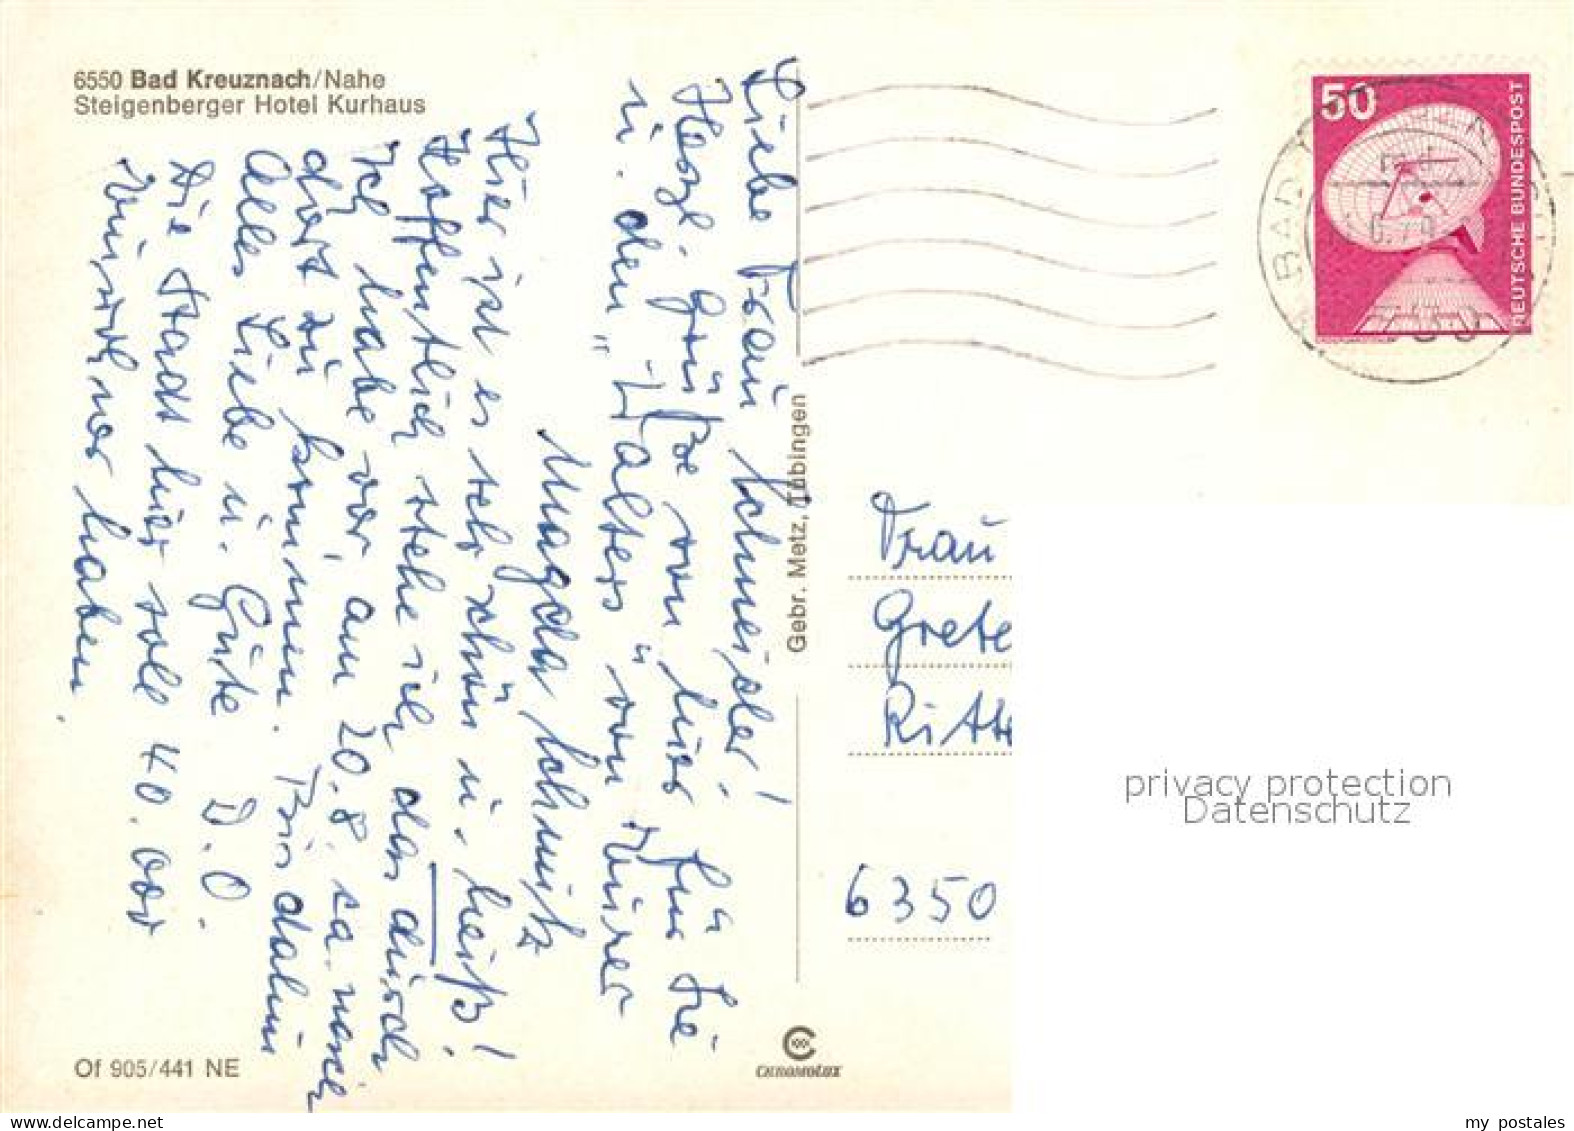 6550 Bad Kreuznach/Nahe
Steigenberger Hotel Kurhaus
Liebe Frau Schneider!
Herzl. Grüße von hier für Sie
u. den „Walters" von Ihrer
Magda Schmitz
Hier ist es sehr schön u. heiß!
Hoffentlich stehe ich das durch
Ich habe vor, am 20.8. ca. nach
dort zu kommen. Bis dahin
Alles Liebe u. Gute D.O.
Die Stadt hier soll 40.000
Einwohner haben.
Of 905/441 NE
Gebr. Metz, Tübingen
CHROMOLUX
50
DEUTSCHE BUNDESPOST
BAD
Frau
Grete
Ritte
6350
privacy protection
Datenschutz
my postales